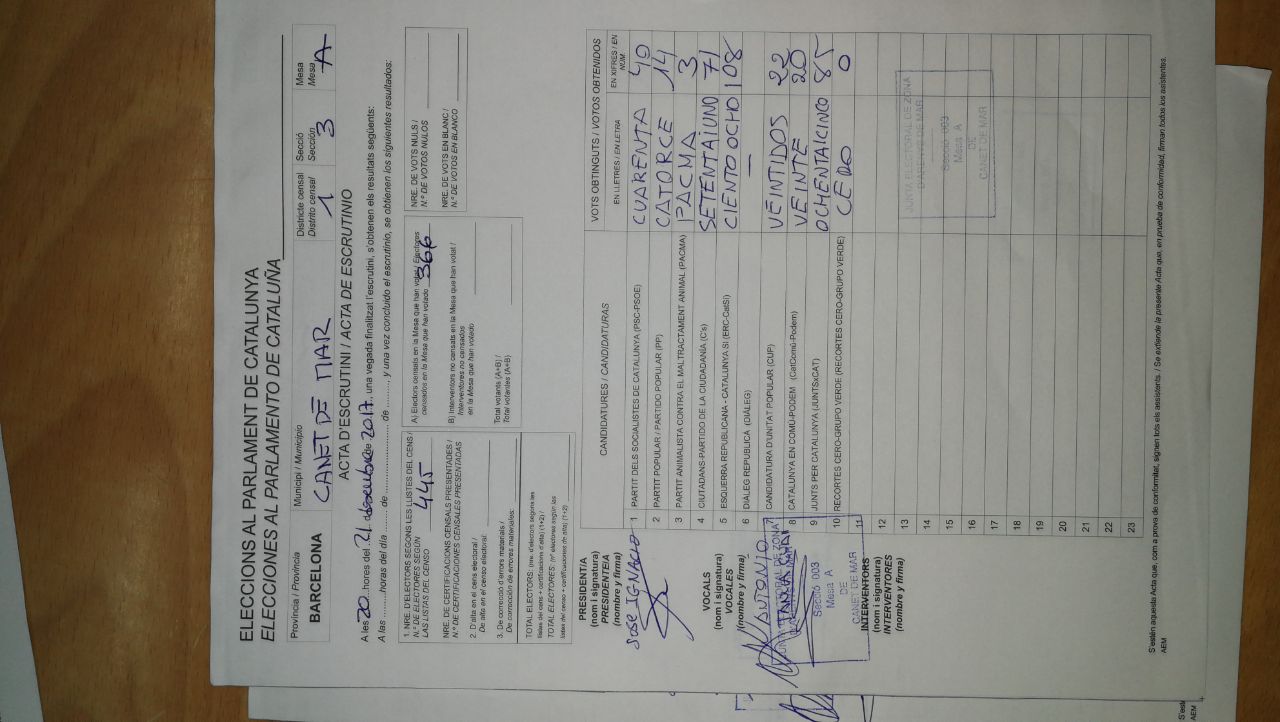 ELECCIONS AL PARLAMENT DE CATALUNYA
ELECCIONES AL PARLAMENTO DE CATALUÑA
Província / Provincia
BARCELONA
Municipi / Municipio
CANET DE MAR
Districte censal
Distrito censal
1
Secció
Sección
3
Mesa
Mesa
A
ACTA D'ESCRUTINI / ACTA DE ESCRUTINIO
A les 20 hores del 21 de desembre de 2017, una vegada finalitzat l'escrutini, s'obtenen els resultats següents:
A las ......... horas del día ........ de ........................ de ........, y una vez concluido el escrutinio, se obtienen los siguientes resultados:
1. NRE. D'ELECTORS SEGONS LES LLISTES DEL CENS /
N.º DE ELECTORES SEGÚN
LAS LISTAS DEL CENSO
445
NRE. DE CERTIFICACIONS CENSALS PRESENTADES /
N.º DE CERTIFICACIONES CENSALES PRESENTADAS
2. D'alta en el cens electoral /
De alta en el censo electoral:
3. De correcció d'errors materials /
De corrección de errores materiales:
TOTAL ELECTORS: (nre. d'electors segons les
llistes del cens + certificacions d'alta) (1+2) /
TOTAL ELECTORES: (nº electores según las
listas del censo + certificaciones de alta) (1+2)
A) Electors censats en la Mesa que han votat / Electores
censados en la Mesa que han votado 366
B) Interventors no censats en la Mesa que han votat /
Interventores no censados
en la Mesa que han votado
Total votants (A+B) /
Total votantes (A+B)
NRE. DE VOTS NULS /
N.º DE VOTOS NULOS
NRE. DE VOTS EN BLANC /
N.º DE VOTOS EN BLANCO
CANDIDATURES / CANDIDATURAS
VOTS OBTINGUTS / VOTOS OBTENIDOS
EN LLETRES / EN LETRA
EN XIFRES / EN NÚM.
1 PARTIT DELS SOCIALISTES DE CATALUNYA (PSC-PSOE) CUARENTA 40
2 PARTIT POPULAR / PARTIDO POPULAR (PP) CATORCE 14
3 PARTIT ANIMALISTA CONTRA EL MALTRACTAMENT ANIMAL (PACMA) PACMA 3
4 CIUTADANS-PARTIDO DE LA CIUDADANÍA (C's) SETENTAIUNO 71
5 ESQUERRA REPUBLICANA - CATALUNYA SÍ (ERC-CatSí) CIENTO OCHO 108
6 DIÀLEG REPUBLICÀ (DIÀLEG) —
7 CANDIDATURA D'UNITAT POPULAR (CUP) VEINTIDOS 22
8 CATALUNYA EN COMÚ-PODEM (CatComú-Podem) VEINTE 20
9 JUNTS PER CATALUNYA (JUNTSxCAT) OCHENTAICINCO 85
10 RECORTES CERO-GRUPO VERDE (RECORTES CERO-GRUPO VERDE) CERO 0
11
12
13
14
15
16
17
18
19
20
21
22
23
JUNTA ELECTORAL DE ZONA
D'ARENYS DE MAR
Secció 003
Mesa A
DE
CANET DE MAR
PRESIDENT/A
(nom i signatura)
PRESIDENTE/A
(nombre y firma)
JOSE IGNACIO
VOCALS
(nom i signatura)
VOCALES
(nombre y firma)
ANTONIO
Secció 003
Mesa A
DE
CANET DE MAR
INTERVENTORS
(nom i signatura)
INTERVENTORES
(nombre y firma)
S'estén aquesta Acta que, com a prova de conformitat, signen tots els assistents. / Se extiende la presente Acta que, en prueba de conformidad, firman todos los asistentes.
AEM
S'esté
AEM